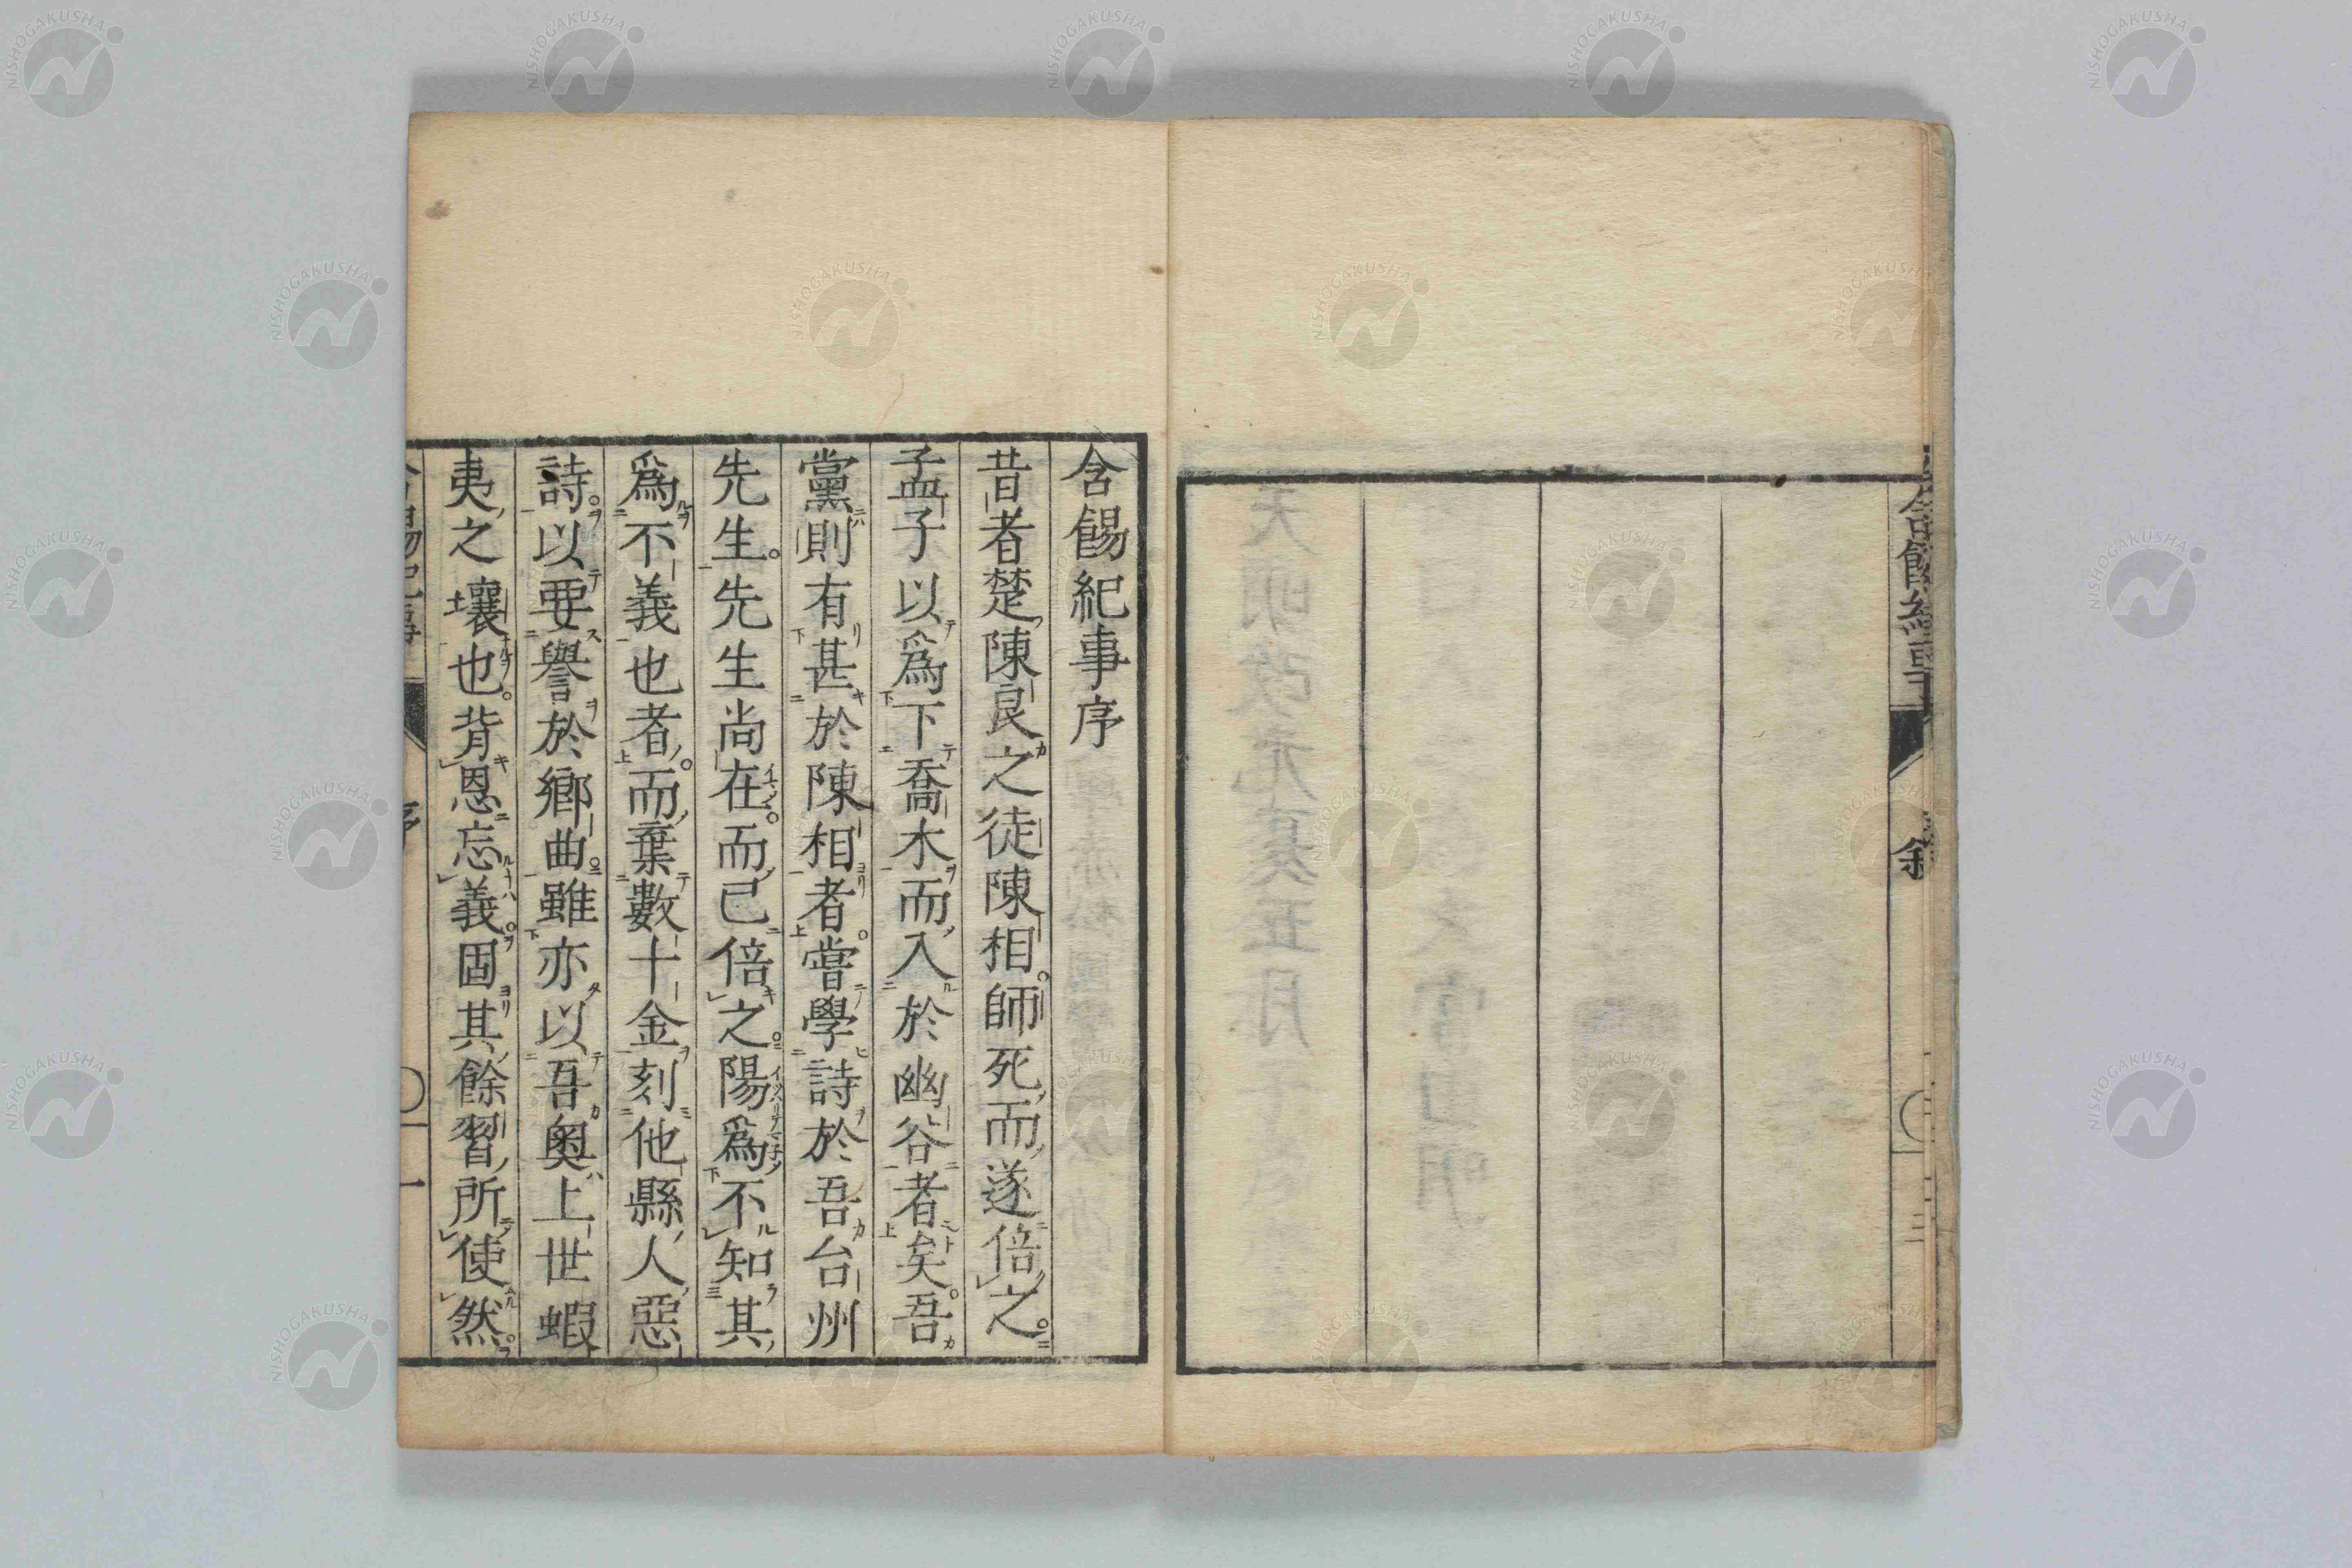 含餳紀事序
昔者楚陳良之徒陳相。師死而遂倍之。
孟子以爲下喬木而入於幽谷者矣。吾
黨則有甚於陳相者。嘗學詩於吾台州
先生。先生尚在。而已倍之。陽爲不知其
爲不義也者。而棄數十金刻他縣人惡
詩。以要譽於鄉曲。雖亦以吾奧上世蝦
夷之壤也。背恩忘義。固其餘習所使然。